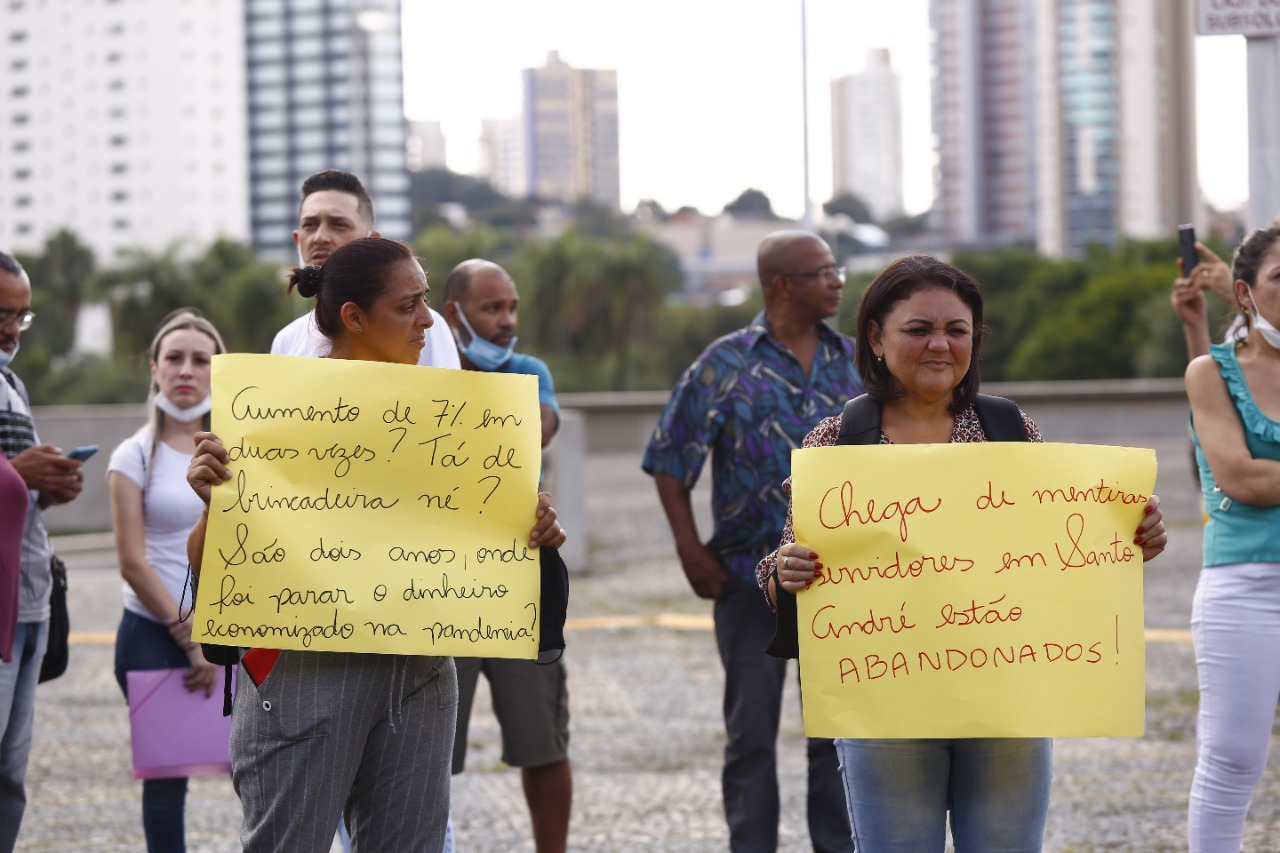 Aumento de 7% em
duas vezes? Tá de
brincadeira né?
São dois anos, onde
foi parar o dinheiro
economizado na pandemia?
Chega de mentiras
servidores em Santo
André estão
ABANDONADOS!
SUBSOLO